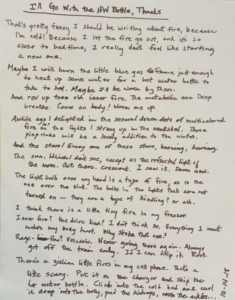 I'll Go With the Hot Water Bottle, Thanks
That's pretty funny I should be writing about fire, because
I'm cold! Because I let the fire go out, and it's so
close to bedtime, I really don't feel like starting
a new one.
Maybe I will burn the little blue gas flame just enough
to heat up some water for a hot water bottle to
take to bed. Maybe I'll be warm by then.
And rev up that old inner fire. The metabolic one. Deep
breaths. Come on body! Warm me up.
Awhile ago I delighted in the several dozen dots of multicolored
fire in the lights I strung up in the . Those
pinpricks will be a lively addition to the winter.
And the stars! Every one of those stars, burning, burning.
The sun. Hidden dark now, except as the reflected light of
the moon. Out there. Crescent. I saw it. Down now.
The light bulb over my head is a type of fire, as is the
one over the stove. The bulbs in the lights that are not
turned on — they are a type of kindling? or ash.
I think there is a little tiny fire in my freezer.
Inner fire? The drive kind? I don't think so. Everything I want
makes my body hurt. Why stoke that one?
Rage fire? Volcanic. Never going there again. Always
get off the train early. If I can help it. Root
There's a jillion little fires in my cell phone. That's a
little scary. Put it on the charger and skip the
hot water bottle. Climb into the cold bed and curl
it deep into the belly, past the kidneys, into the ankles...
10-14-18